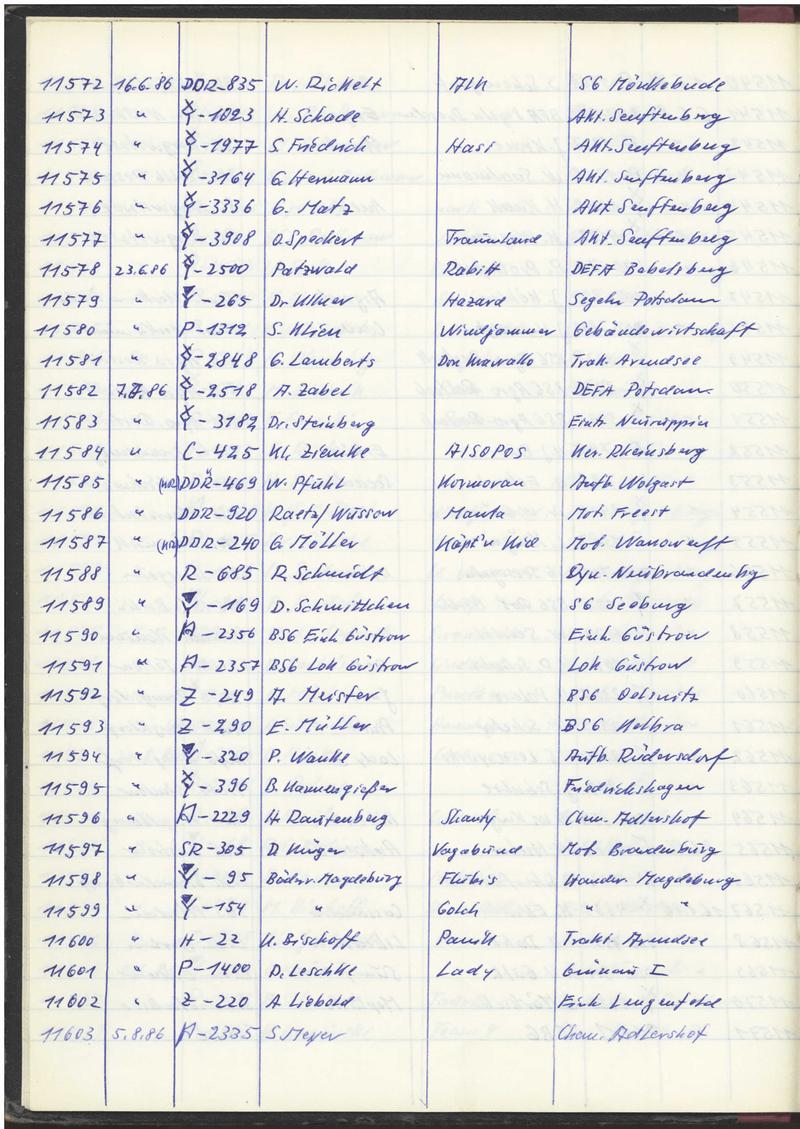 11572 16.6.86 DDR-835 W. Rickelt Alk SG Mönkebude
11573 " -1023 H. Schade Akt. Senftenberg
11574 " -1977 S. Friedrich Hasi Akt. Senftenberg
11575 " -3164 G. Hermann Akt. Senftenberg
11576 " -3336 G. Matz Akt. Senftenberg
11577 " -3908 O. Speckert Traumland Akt. Senftenberg
11578 23.6.86 -2500 Patzwald Rabitt DEFA Babelsberg
11579 " -265 Dr. Ulmer Hazard Segeln Potsdam
11580 " P-1312 S. Klien Windjammer Gebäudewirtschaft
11581 " -2848 G. Lamberts Don Trak. Arendsee
11582 7.7.86 -2518 A. Zabel DEFA Potsdam
11583 " -3182 Dr. Steinberg Einh. Neuruppin
11584 " C-425 Kl. Ziemke AISOPOS Ker. Rheinsberg
11585 " DDR-469 W. Pfuhl Kormoran Aufb. Wolgast
11586 " DDR-920 Raetz/Wussow Manta Mot. Freest
11587 " DDR-240 G. Möller Käpt'n Kid Mot. Warnowerft
11588 " R-685 R. Schmidt Dyn. Neubrandenbg
11589 " -169 D. Schnittchen SG Seeburg
11590 " -2356 BSG Einh. Güstrow Einh. Güstrow
11591 " -2357 BSG Lok Güstrow Lok Güstrow
11592 " Z-249 A. Meister BSG Oelsnitz
11593 " Z-290 E. Müller BSG Kelbra
11594 " -320 P. Wanke Aufb. Rüdersdorf
11595 " -396 B. Kannengießer Friedrichshagen
11596 " -2229 H. Rautenberg Shanty Chem. Adlershof
11597 " SR-305 D. Krüger Vagabund Mot. Brandenburg
11598 " -95 Böders. Magdeburg Flubis Handw. Magdeburg
11599 " -154 " Golch " "
11600 " H-22 U. Bischoff Panik Trakt. Arendsee
11601 " P-1400 D. Leschke Lady Grünau I
11602 " Z-220 A. Liebold Einh. Lengenfeld
11603 5.8.86 -2335 S. Meyer Chem. Adlershof